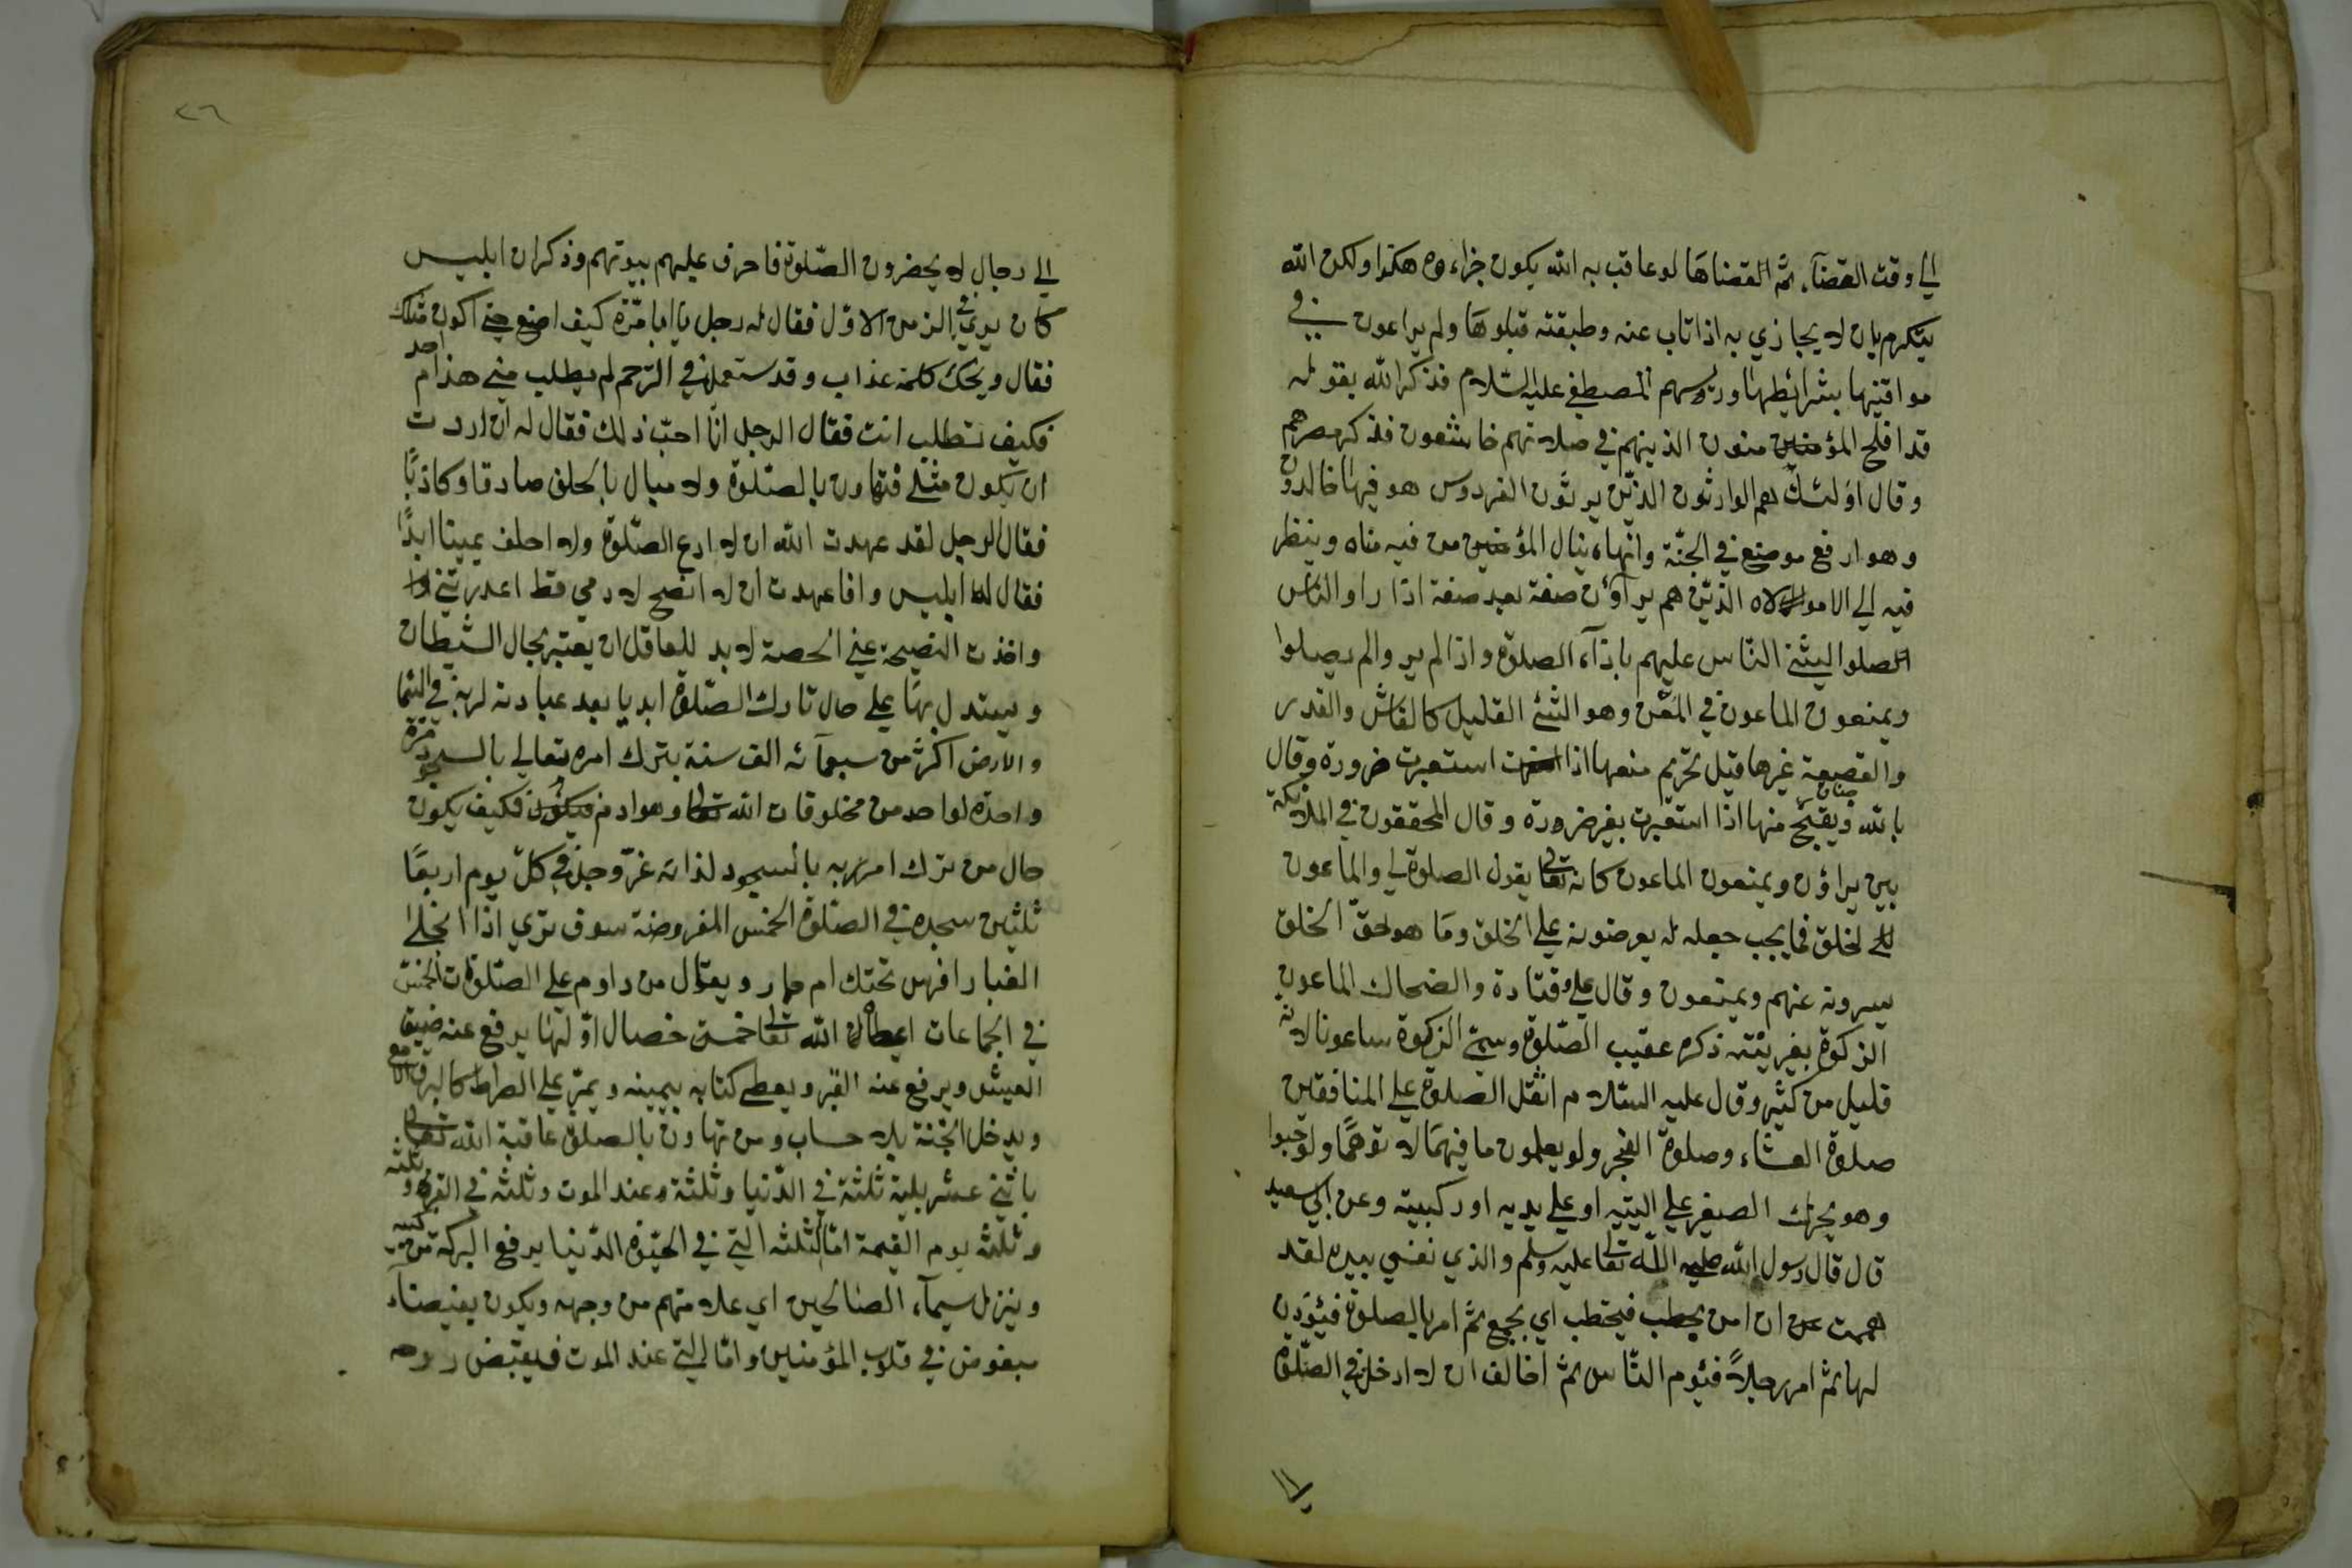 الي وقت القضآء ثم القضاها لو عاقب به الله يكون جزاءه هكذا ولكن الله
يتكرم بان لا يجازي به اذا تاب عنه وطبقته قبلوها ولم يراعون في
مواقيتها بشرائطها ورسهم المصطفي عليه السّلام فذكر الله بقوله
قد افلح المؤمنين منون الذينهم في صلاتهم خاشعون فذكر
وقال اولئك هم الوارثون الذيّن يرثون الفردوس هو فيها خالدون
وهو ارفع موضع في الجنّة وانهاه ينال المؤمنين من فيه مناه وينظر
فيه الي الاه الذيّن هم يرآؤن صفة بعد صفة اذا راو الناس
الصلوا ليثني الناس عليهم باذآء الصلوة واذا لم ير والم يصلوا
ويمنعون الماعون في وهو الشئ القليل كالفاس والقدر
والقصيعة غيرها قيل تحريم منعها اذا استعيرت ضرورة وقال
بالله ويقبح منها اذا استعيرت بغير ضرورة وقال المحققون في الملائكة
بين يراؤن ويمنعون الماعون كانه تعالي يقول الصلوة لي والماعون
لخلق فما يجب جعله له يعرضونه علي الخلق وما هو لحقّ الخلق
يسرونه عنهم ويمنعون وقال علي وقتادة والضحاك الماعون
الزكوة بغريته ذكره عقيب الصّلوة وسمّي الزكوة ساعونا لانه
قليل من كثير وقال عليه السّلام اثقل الصلوة علي المنافقين
صلوة العشاء وصلوة الفجر ولو يعلمون ما فيهما لا توهمًا ولو حبوا
وهو يحرك الصغير علي اليتيه او علي يديه او ركبيته وعن ابي سعيد
قال قال رسول الله صلي الله تعالي عليه وسلم والذي نفسي بيده لقد
هممت ان امن بحطب فيحطب اي يجمع ثم امر بالصلوة فيئودن
لها ثم امر رجلاً فئوم الناس ثم اخالف ان لا ادخل في الصّلوة
١١
٢٦
الي رجال لا يحضرون الصّلوة فاحرق عليهم بيوتهم وذكر ان ابليس
كان يري في الزمن الاوّل فقال له رجل يا ابا مرّة كيف اصنع حتي اكون مثلك
فقال ويحك كلمة عذاب وقد ستعملن في الترّحم لم يطلب مني هذا احد
فكيف تطلب انت فقال الرجل انّا احبّ ذلك فقال له ان اردت
ان يكون مثلي فتهاون بالصّلوة ولا مبال بالحلف صادقا وكاذبًا
فقال الرجل لقد عهدت الله ان لا ادع الصّلوة ولا احلف يمينا ابدًا
فقال له ابليس وانا عهدت ان لا انصح لادمي قط
واخذت النصيحة عني الحصة لا بد للعاقل ان يعتبر بحال الشيطان
ويستدل بها علي حال تارك الصّلوة ابديا بعد عبادته لربه في السّما
والارض اكثر من سبعمآئه الف سنة بترك امره تعالي بالسجود مرّة
واحدة لواحد من مخلوقات الله تعالي وهو ادم فكيف يكون
حال من ترك امر ربه بالسجود لذاته عزّ وجلّ في كلّ يوم اربعًا
ثلثين سجدة في الصّلوة الخمس المفروضة سوف تري اذا انجلي
الغبار افرس تحتك ام حمار ويقال من داوم علي الصّلوات الخمس
في الجماعات اعطاه الله تعالي خمس خصال اوّلها يرفع عنه ضيق
العيش ويرفع عنه القبر ويعطي كتابه بيمينه ويمرّ علي الصراط كالبرق
ويدخل الجنة بلا حساب ومن تهاون بالصلوة عاقبة الله تعالي
باثني عشر بلية ثلثة في الدّنيا وثلثة عند الموت وثلثه في القبر
وثلثه يوم القيمة امّا الثلثه التي في الحيوة الدّنيا يرفع البركة من كسبه
وينزل سيمآء الصالحين اي علامتهم من وجهه ويكون بغيضآء
مبغوض في قلوب المؤمنين وامّا التي عند الموت فيقبض روحه